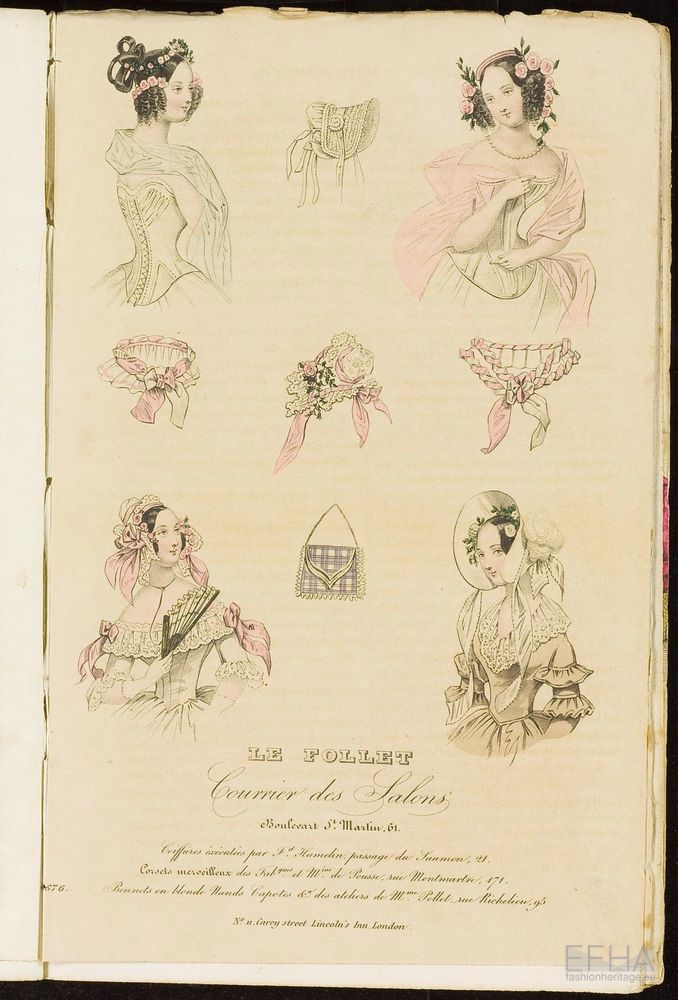 LE FOLLET
Courrier des Salons
Boulevart St. Martin, 61.
Coiffures éxécutées par Fd. Hamelin, passage du Saumon, 21.
Corsets merveilleux des Fabques et Mins de Pousse, rue Montmartre, 171.
876.
Bonnets en blonde Nœuds Capotes &a. des ateliers de Mme Pollet, rue Richelieu, 95
No. 11, Carey street Lincoln's Inn, London.
EFHA
fashionheritage.eu